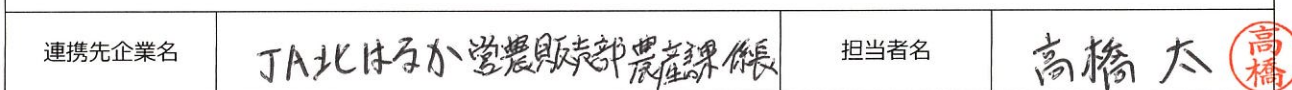 連携先企業名 JA北はるか営農販売部農産課係長 担当者名 高橋 太 高橋